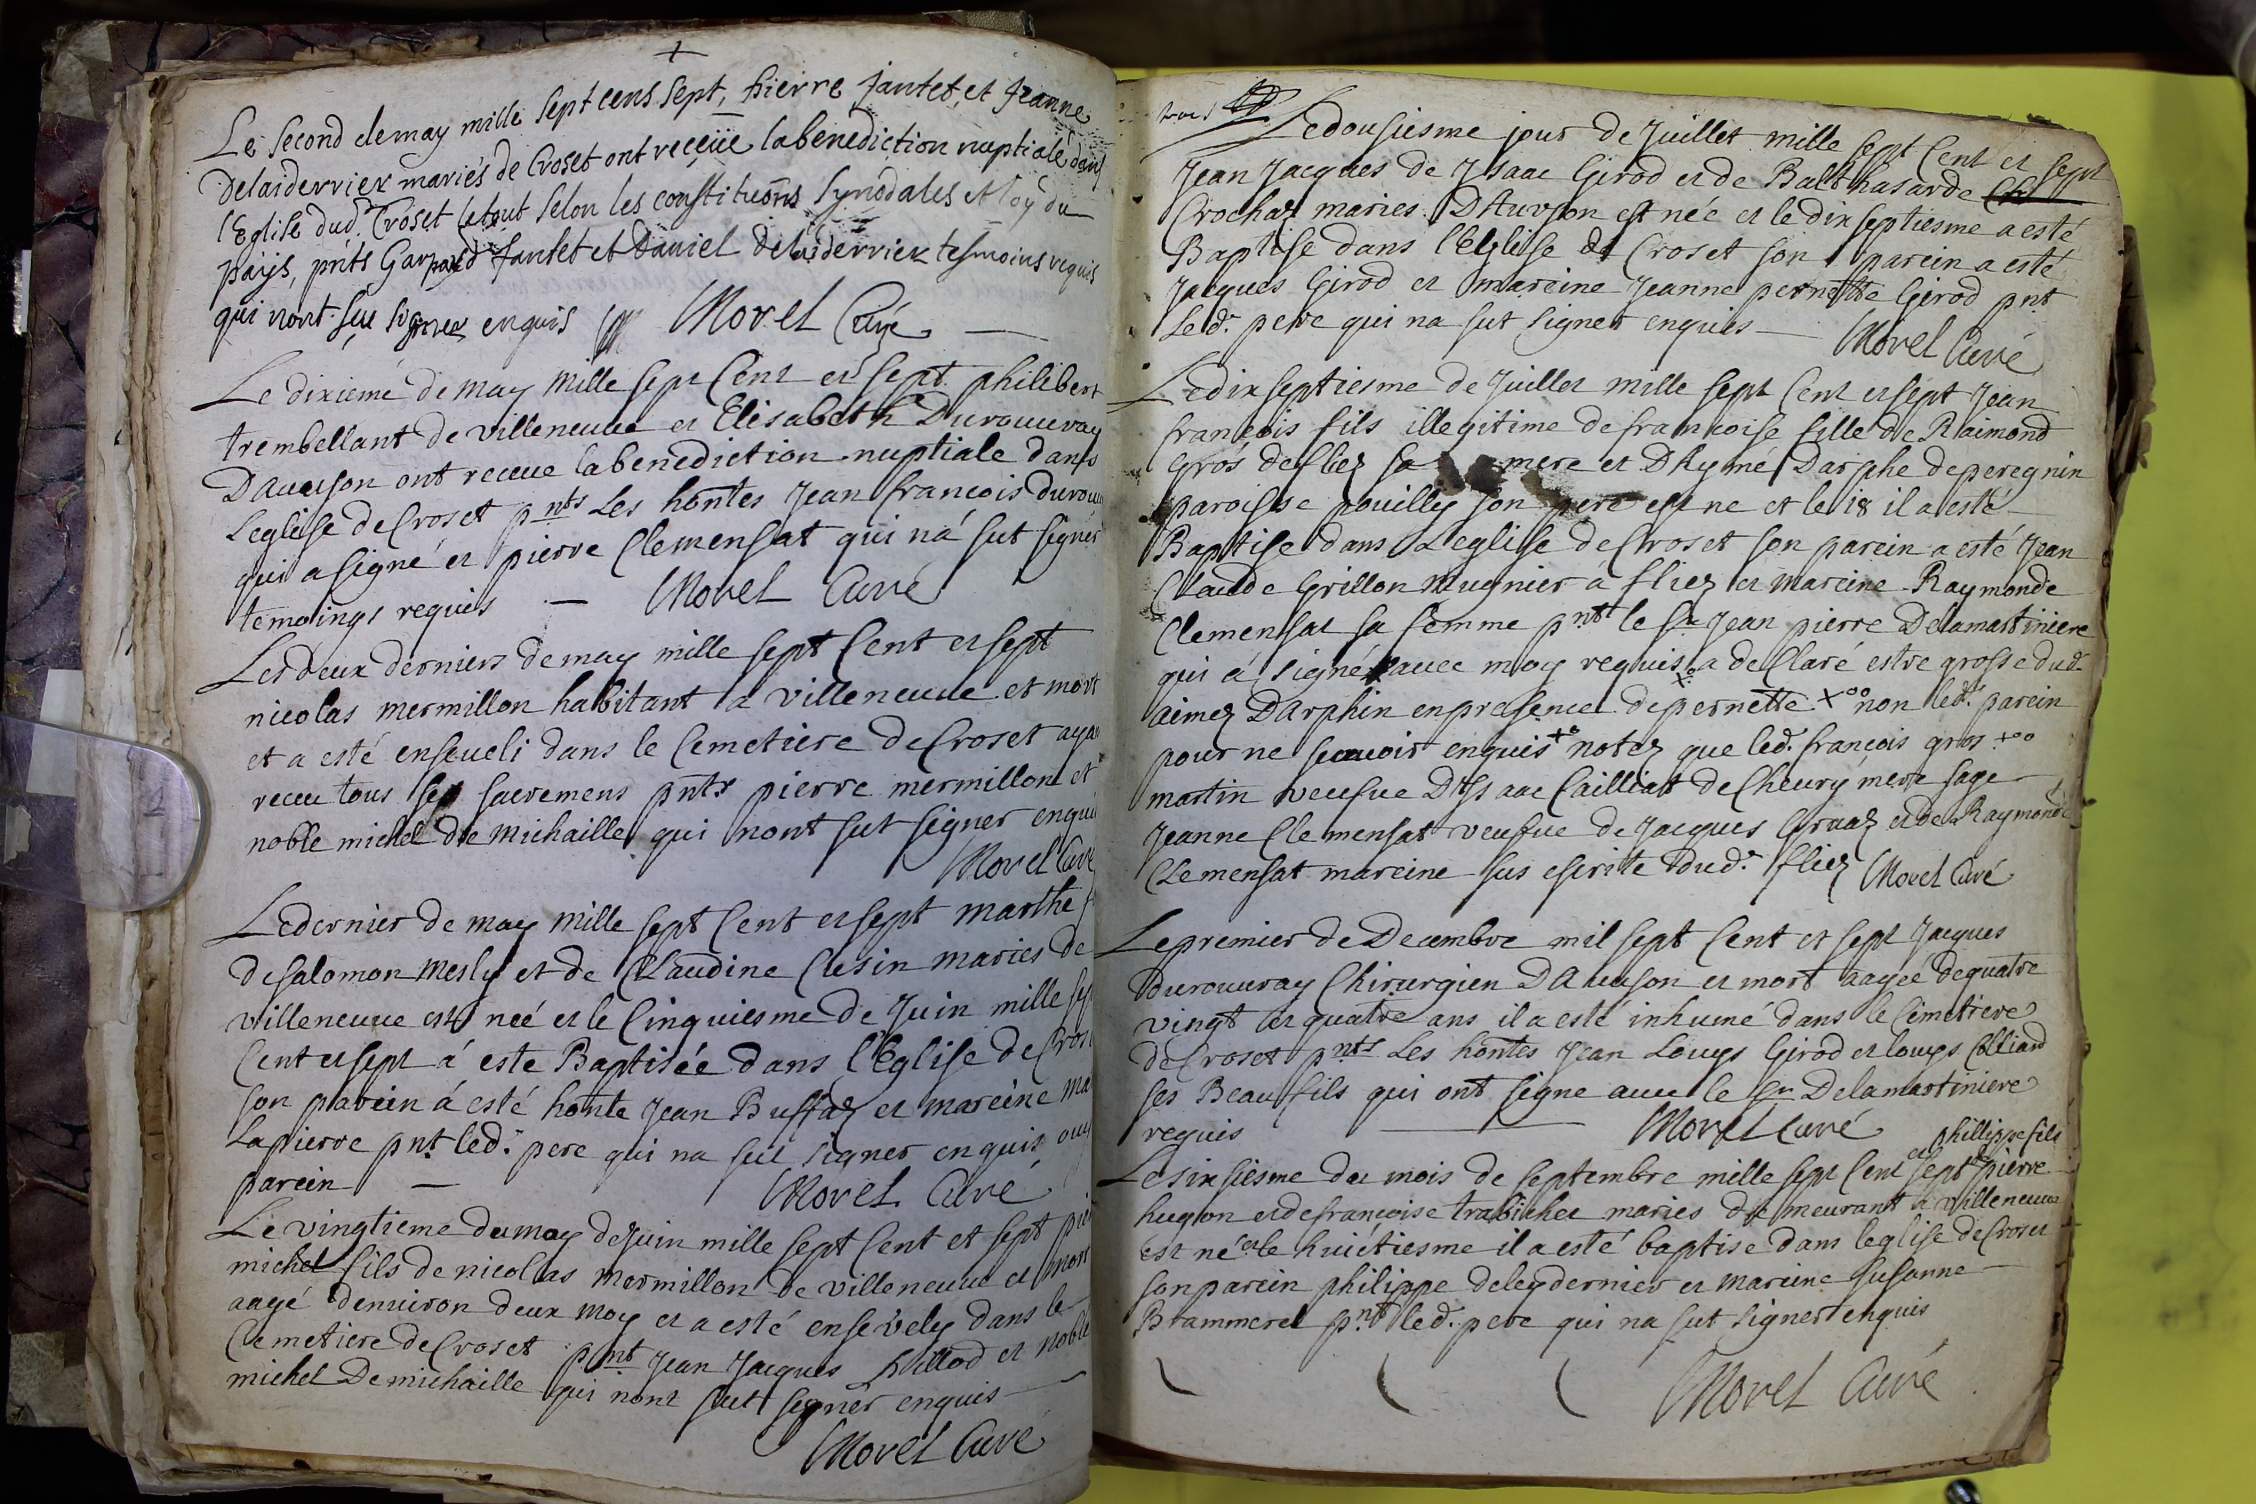 +
Le second de may mille sept cens sept, Pierre Jantet, et Jeanne
Delaiderrier mariés de Croset ont reçeüe la benediction nuptiale dans
l'Eglise dud. Croset le tout selon les constitutions synodales et loy du
païs, pnts Gaspard Jantet et Daniel Delaiderrier tesmoins requis
qui n'ont sçu signer enquis Morel Curé
Le dixieme de may mille sept cent et sept philibert
trembellant de villeneuve et Elisabeth Durouvray
D'Avuson ont receue la benediction nuptiale dans
Leglise de Croset pnts Les hontes Jean francois durouv
qui a signé et pierre Clemensat qui na sut signer
temoings requis Morel Curé
Les deux derniers de may mille sept Cent et sept
nicolas mermillon habitant a villeneuve et mort
et a esté enseveli dans le Cemetiere de Croset aya
receu tous ses sacremens pnts pierre mermillon et
noble michel de michaille qui nont sut signer enqui
Morel Curé
Le dernier de may mille sept Cent et sept marthe f
de salomon mesly et de Claudine Clesin maries de
villeneuve est née et le Cinquiesme de Juin mille sep
Cent et sept á este Baptisée dans l'Eglise de Cros
son parein á esté honte Jean Buffaz et mareine ma
Lapierre pnt led. pere qui na sut signer enquis ouy
parein Morel Curé
Le vingtieme du moy de Juin mille sept Cent et sept pie
michel fils de nicolas mermillon de villeneuve et mort
aagé denviron deux moy et a esté ensevely dans le
Cemetiere de Croset pnt Jean Jacques hillod et noble
michel Demichaille qui nont sut signer enquis
Morel Curé
Le dousiesme jour de Juillet mille sept Cent et sept
Jean Jacques de Jsaac Girod et de Balthasarde
Crochaz maries D'Avuson est née et le dix septiesme a esté
Baptise dans l'Eglise de Croset son parein a esté
Jacques Girod et mareine Jeanne pernette Girod pnt
Le d. pere qui na sut signer enquis
Morel Curé
Le dix septiesme de Juillet mille sept Cent et sept Jean
françois fils illegitime de francoise fille de Raimond
Gros de fliez sa mere et D'Aymé Darphe de peregnin
paroisse pouilly son pere est ne et le 18 il a esté
Baptise dans L'eglise de Croset son parein a esté Jean
Claude Grillon mugnier à fliez et mareine Raymonde
Clemensat sa femme pnt le sr Jean pierre Delamartiniere
qui á signé avec moy requis a declaré estre grosse dud.
aimez Darphin en presence de pernette +oo non led. parein
pour ne scavoir enquis +o notez que led. francois gros +oo
martin veufve D'Isaac Cailliat de Cheury mere sage
Jeanne Clemensat veufve de Jacques Gruaz et de Raymonde
Clemensat mareine sus escrite dud. fliez Morel Curé
Le premier de Decembre mil sept Cent et sept Jacques
durouvray Chirurgien D'Avuson et mort aagée de quatre
vingt et quatre ans il a esté inhumé dans le Cimetiere
de Croset pnts Les hontes Jean Louys Girod et louys Colliard
ses Beaufils qui ont signe avec le sr Delamartiniere
requis Morel Curé
Le sixsiesme du mois de septembre mille sept Cent et sept phillippe fils pierre
hugon et de francoise trabichet maries demeurant a villeneuve
est né et le huictiesme il a esté baptise dans leglise de Croset
son parein philippe deleydernier et mareine susanne
Brammerel pnt led. pere qui na sut signer enquis
Morel Curé